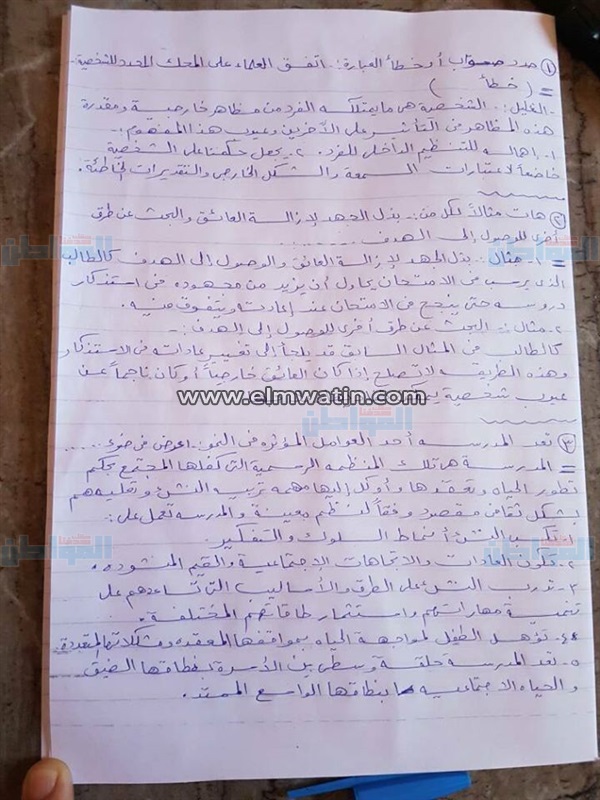 ① حدد صواب أو خطأ العبارة: اتفق العلماء على المحك المحدد للشخصية
= ( خطأ )
- الدليل:- الشخصية هى ما يمتلكه الفرد من مظاهر خارجية ومقدرة
هذه المظاهر من التأثير على الآخرين وعيوب هذا المفهوم:-
١- إهماله للتنظيم الداخلى للفرد. ٢- يجعل حكمنا على الشخصية
خاضعاً لاعتبارات السمعة والشكل الخارجى والتقديرات الخاطئة.
② هات مثالاً لكل من:- بذل الجهد لإزالة العائق والبحث عن طرق
أخرى للوصول إلى الهدف ........
= ١- مثال:- بذل الجهد لإزالة العائق والوصول إلى الهدف كالطالب
الذى يرسب فى الامتحان يحاول أن يزيد من مجهوده فى استذكار
دروسه حتى ينجح فى الامتحان عند إعادته ويتفوق فيه.
٢- مثال:- البحث عن طرق أخرى للوصول إلى الهدف:-
كالطالب فى المثال السابق قد يلجأ إلى تغيير عاداته فى الاستذكار
وهذه الطريقة لا تصلح إذا كان العائق خارجياً أو كان ناجماً عن
عيوب شخصية
www.elmwatin.com
③ تعد المدرسة أحد العوامل المؤثرة فى النمو: اعرض فى ضوء .....
= المدرسة هى تلك المنظمة الرسمية التى كفلها المجتمع بحكم
تطور الحياه وتعقدها وأوكل إليها مهمة تربية النشئ وتعليمهم
بشكل ثقافى مقصود وفقاً لتنظيم معينة والمدرسة تعمل على:-
١- تكسب النشئ أنماط السلوك والتفكير.
٢- تكون العادات والاتجاهات الاجتماعية والقيم المنشودة.
٣- تدرب النشئ على الطرق والأساليب التى تساعدهم على
تنمية مهاراتهم واستثمار طاقاتهم المختلفة.
٤- تؤهل الطفل لمواجهة الحياه بمواقفها المعقده ومشكلاتها المتعددة
٥- تعد المدرسة حلقة وسطى بين الأسرة بنطاقها الضيق
والحياه الاجتماعيه بنطاقها الواسع الممتد.
المواطن